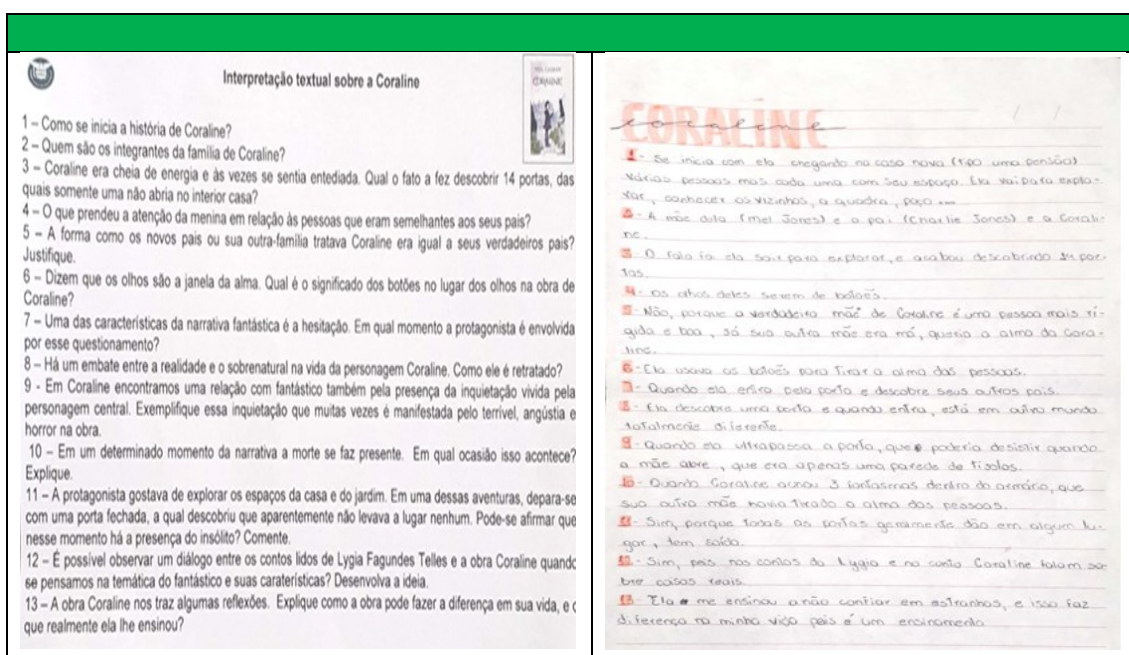 Interpretação textual sobre a Coraline
CORALINE
1 – Como se inicia a história de Coraline?
2 – Quem são os integrantes da família de Coraline?
3 – Coraline era cheia de energia e às vezes se sentia entediada. Qual o fato a fez descobrir 14 portas, das
quais somente uma não abria no interior casa?
4 – O que prendeu a atenção da menina em relação às pessoas que eram semelhantes aos seus pais?
5 – A forma como os novos pais ou sua outra-família tratava Coraline era igual a seus verdadeiros pais?
Justifique.
6 – Dizem que os olhos são a janela da alma. Qual é o significado dos botões no lugar dos olhos na obra de
Coraline?
7 – Uma das características da narrativa fantástica é a hesitação. Em qual momento a protagonista é envolvida
por esse questionamento?
8 – Há um embate entre a realidade e o sobrenatural na vida da personagem Coraline. Como ele é retratado?
9 - Em Coraline encontramos uma relação com fantástico também pela presença da inquietação vivida pela
personagem central. Exemplifique essa inquietação que muitas vezes é manifestada pelo terrível, angústia e
horror na obra.
10 – Em um determinado momento da narrativa a morte se faz presente. Em qual ocasião isso acontece?
Explique.
11 – A protagonista gostava de explorar os espaços da casa e do jardim. Em uma dessas aventuras, depara-se
com uma porta fechada, a qual descobriu que aparentemente não levava a lugar nenhum. Pode-se afirmar que
nesse momento há a presença do insólito? Comente.
12 – É possível observar um diálogo entre os contos lidos de Lygia Fagundes Telles e a obra Coraline quando
se pensamos na temática do fantástico e suas caraterísticas? Desenvolva a ideia.
13 – A obra Coraline nos traz algumas reflexões. Explique como a obra pode fazer a diferença em sua vida, e o
que realmente ela lhe ensinou?
CORALINE
coraline
1- Se inicia com ela chegando na casa nova (tipo uma pensão)
várias pessoas mas cada uma com seu espaço. Ela vai para explo-
rar, conhecer os vizinhos, a quadra, poço ...
2- A mãe dela (mel Jones) e o pai (Charlie Jones) e a Corali-
ne.
3- O fato foi ela sair para explorar, e acabou descobrindo 14 por-
tas.
4- os olhos deles serem de botões.
5- Não, porque a verdadeira mãe de Coraline é uma pessoa mais rí-
gida e boa, já sua outra mãe era má, queria a alma da Cora-
line.
6- Ela usava os botões para tirar a alma das pessoas.
7- Quando ela entra pela porta e descobre seus outros pais.
8- Ela descobre uma porta e quando entra, está em outro mundo
totalmente diferente.
9- Quando ela ultrapassa a porta, que poderia desistir quando
a mãe abre, que era apenas uma parede de tijolos.
10- Quando Coraline achou 3 fantasmas dentro do armário, que
sua outra mãe havia tirado a alma das pessoas.
11- Sim, porque todas as portas geralmente dão em algum lu-
gar, tem saída.
12- Sim, pois nos contos da Lygia e no conto Coraline falam so-
bre coisas reais.
13- Ela me ensinou a não confiar em estranhos, e isso faz
diferença na minha vida pois é um ensinamento.